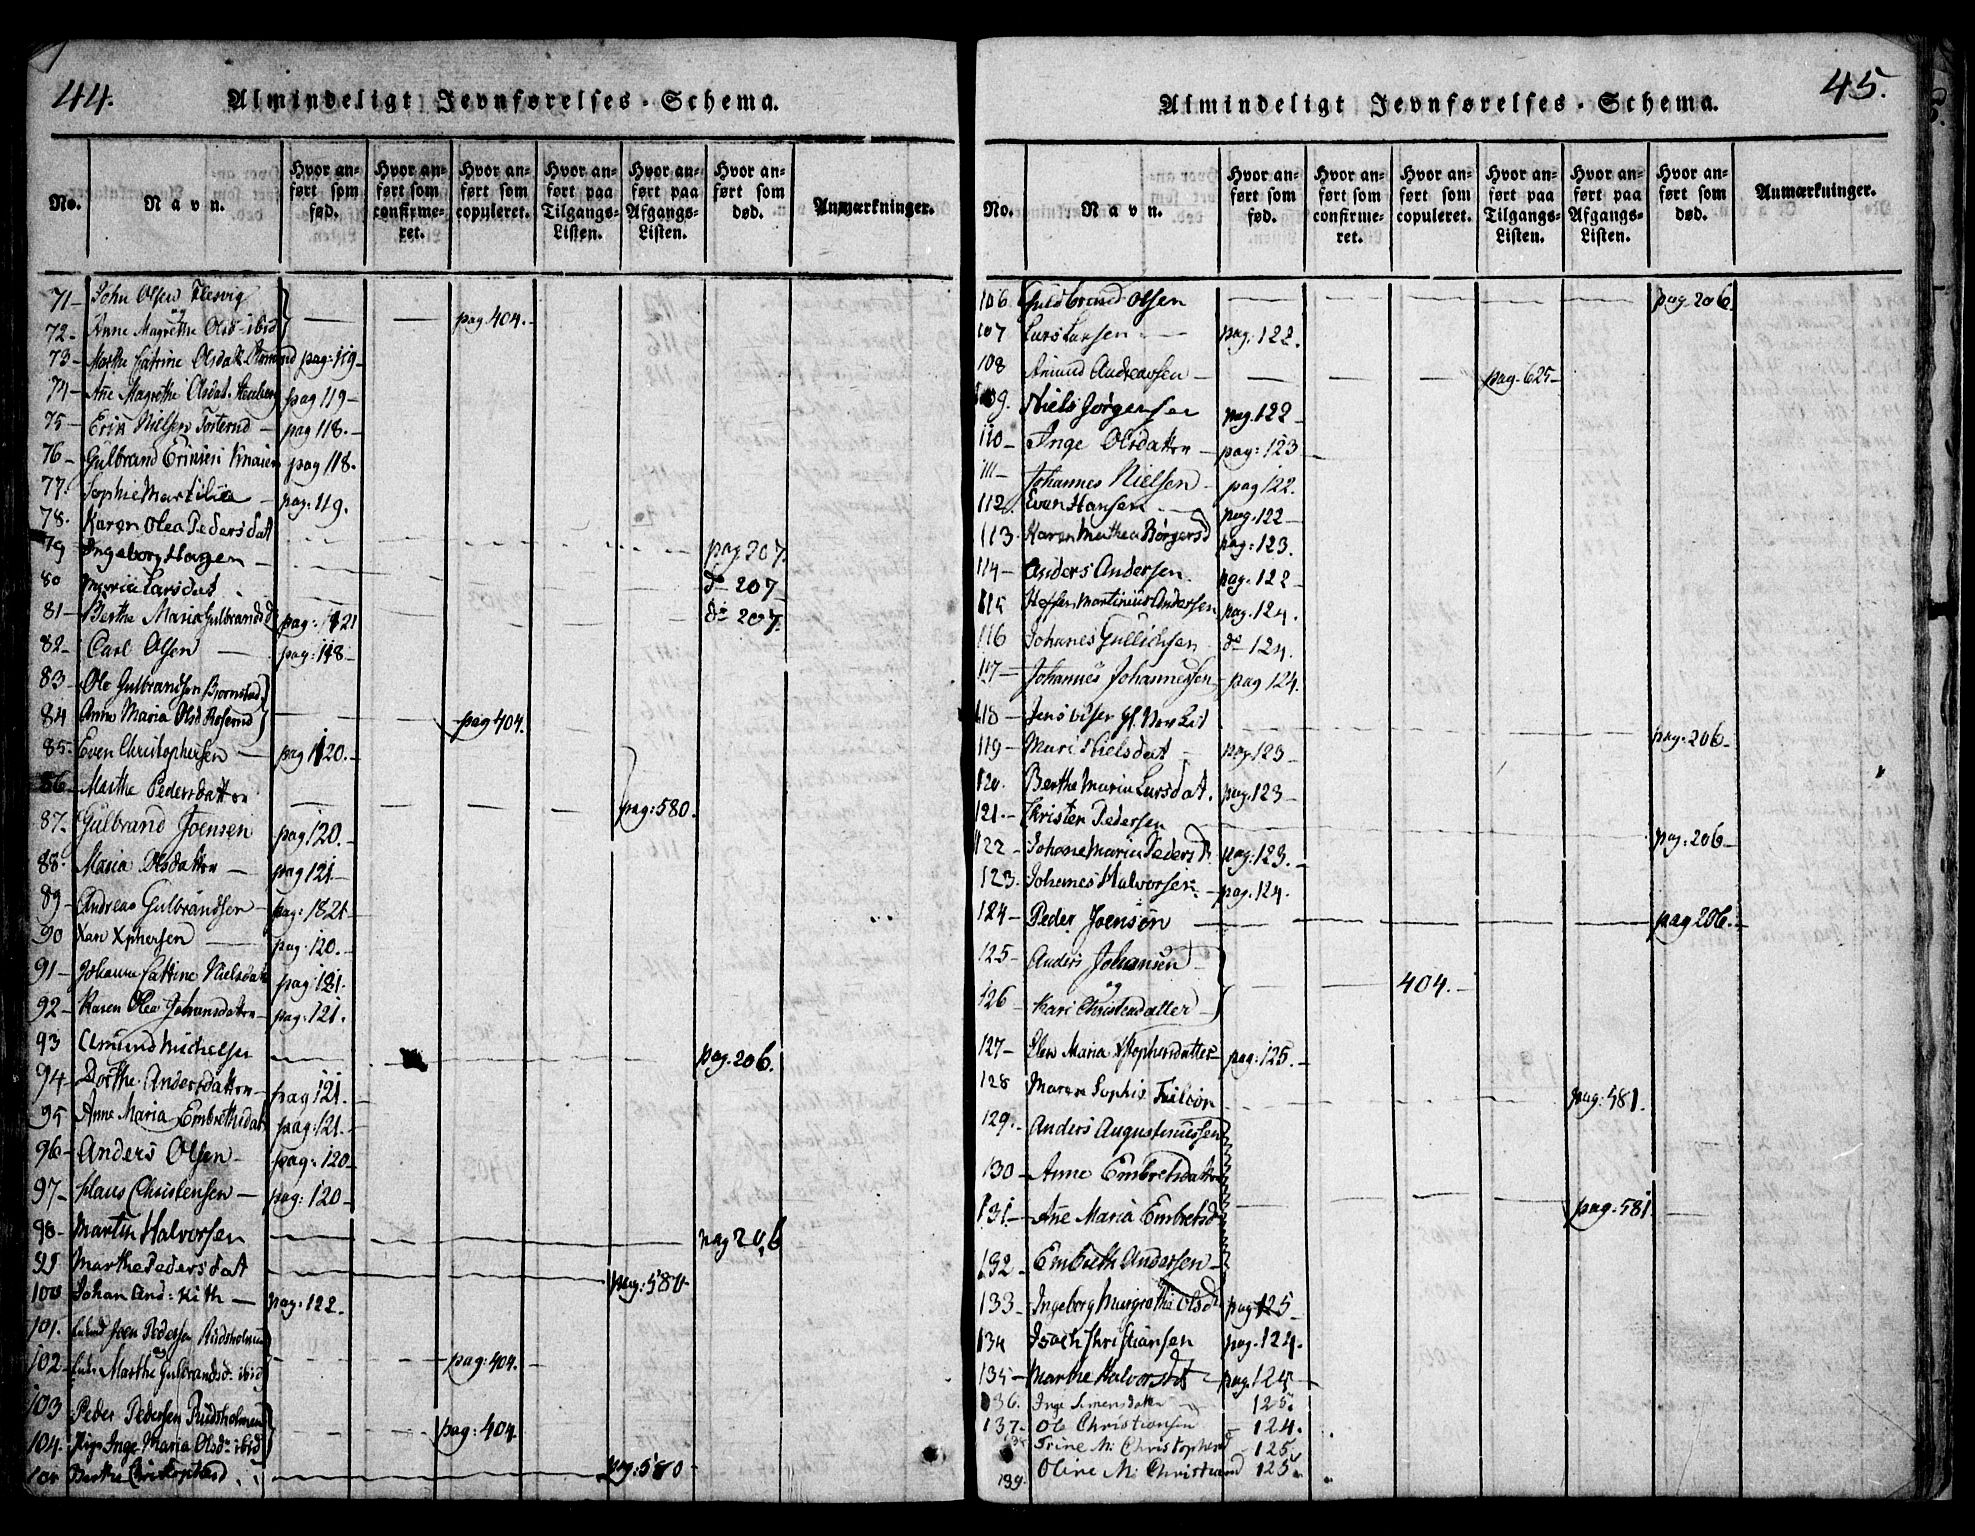 44.
Almindeligt Jevnførelses-Schema.
No.
Navn.
Hvor anført som fød.
Hvor anført som confirmeret.
Hvor anført som copuleret.
Hvor anført paa Tilgangs-Listen.
Hvor anført paa Afgangs-Listen.
Hvor anført som død.
Anmærkninger.
71 – John Olsen
72 – Anne Magrethe Olsd – ibid – pag 404.
73 – Marthe Catrine Olsdatt. pag: 119 –
74 – Añe Magrethe Olsdat. pag 119 –
75 – Erik Nielsen – pag 118. –
76 – Gulbrand pag 118.
77. Sophie – pag. 119.
78. Karen Olea Pedersdat
79 Ingeborg Hagen – pag. 207
80 Maria Larsdat do 207
81 – Berthe Maria Gulbrandsd pag: 121 do 207.
82 – Carl Olsen – pag: 118 –
83 – Ole Gulbrandsen Bjørnstad
84 – Anne Maria Olsd pag 404.
85 – Even Christophersen – pag 120. –
86 – Marthe Pedersdatter pag: 580.
87. Gulbrand Joensen pag 120.
88. Maria Olsdatter – pag 121 –
89 – Andreas Gulbrandsen – pag: 121 –
90 Xan Xphersen – pag. 120. –
91 – Johanna Cattrine Nielsdatt pag 121.
92 – Karen Olea Johansdatter – pag. 121.
93 Amund Michelsen pag. 206.
94 – Dorthe Andersdatter – pag 121.
95 – Anne Maria Embrethsdat pag: 121. –
96 – Anders Olsen – pag: 120 –
97 – Claus Christensen – pag: 120 –
98 – Martin Halvorsen pag 206
99 Marthe Pedersdat
100 Johan And: Kith – pag. 122. pag: 580
101. Joen Pedersen Rudsholmen
102 – Marthe Gulbrandsd – ibid pag: 404.
103 Peder Pedersen Rudsholmen
104. Pige Inge Maria Olsd: ibid pag: 404.
105 Berthe Christophersd pag: 580
45.
Almindeligt Jevnførelses-Schema.
No.
Navn.
Hvor anført som fød.
Hvor anført som confirmeret.
Hvor anført som copuleret.
Hvor anført paa Tilgangs-Listen.
Hvor anført paa Afgangs-Listen.
Hvor anført som død.
Anmærkninger.
106. Guldbrand Olsen pag. 206
107 Lars Larsen – pag: 122.
108 Amund Andreassen – pag. 625 –
109. Niels Jørgensen pag. 122 –
110 – Inge Olsdatter – pag: 123 –
111 – Johannes Nielsen – pag 122.
112 Even Hansen – pag: 122 –
113. Karen Mathea Børgersd pag: 123.
114 – Anders Andersen. pag. 122 –
115 Martinius Andersen pag. 124.
116 Johanes Gullichsen do 124.
117 – Johannes Johannessen – pag 124.
118 – Jens pag. 206 –
119 – Mari Nielsdat – pag. 123 –
120. Berthe Maria Larsdat. pag. 123 –
121. – Christen Pedersen pag. 206 –
122 – Johane Maria Pedersd pag: 123. –
123. Johanes Halvorsen – pag. 124.
124 – Peder Joensøn – pag 206. –
125 – Anders Johansen –
og
126 – Kari Christensdatter – 404. –
127 – Elen Maria Xstophersdatter – pag: 125. –
128 Maren Sophie pag: 581.
129. – Anders Augustinussen
130 – Anne Embretsdatter
131. – Añe Maria Embretsd pag: 581
132 – Embreth Andersen –
133 – Ingeborg Margretha Olsd pag 125 –
134 Isach Christiansen pag. 124.
135 – Marthe Halvorsdt – pag. 124 –
136. Inge Simensdatter – 125.
137. Ole Christiansen – 124.
138 Trine M: Christophersd – 125.
139. Oline M: 125